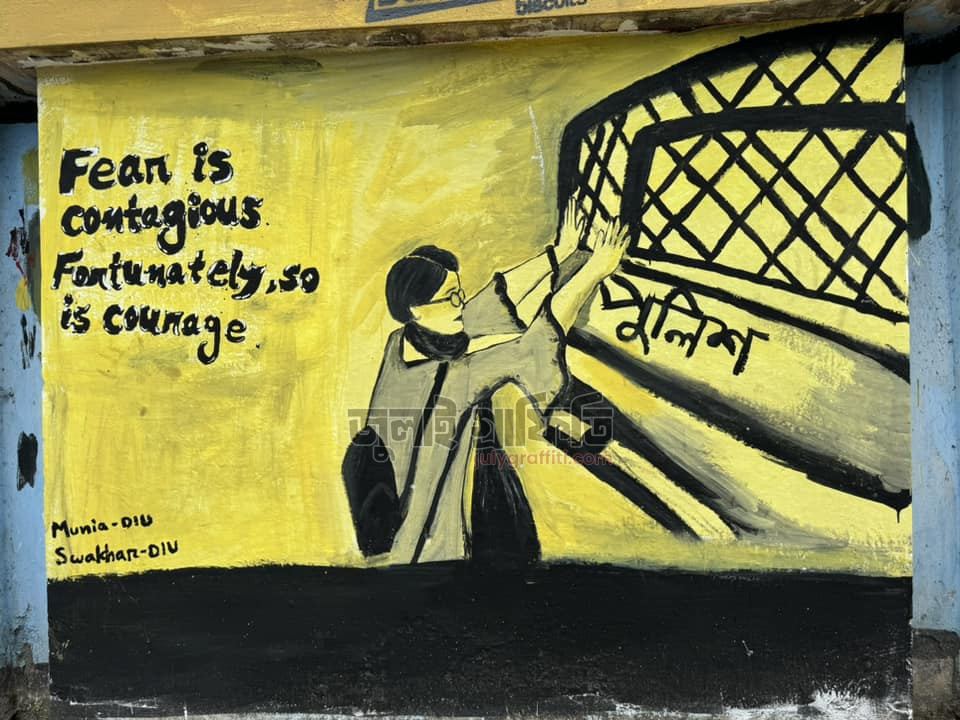 BISCUITS
Fear is
contagious.
Fortunately, so
is courage.
পুলিশ
জুলাই গ্রাফিতি
julygraffiti.com
Munia-DIU
Swakhar-DIU